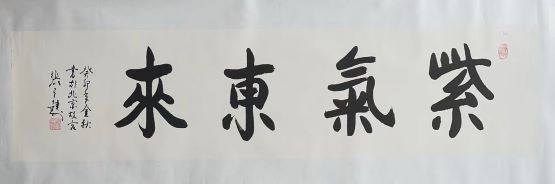 紫氣東來
癸卯年金秋
書於北京故宮